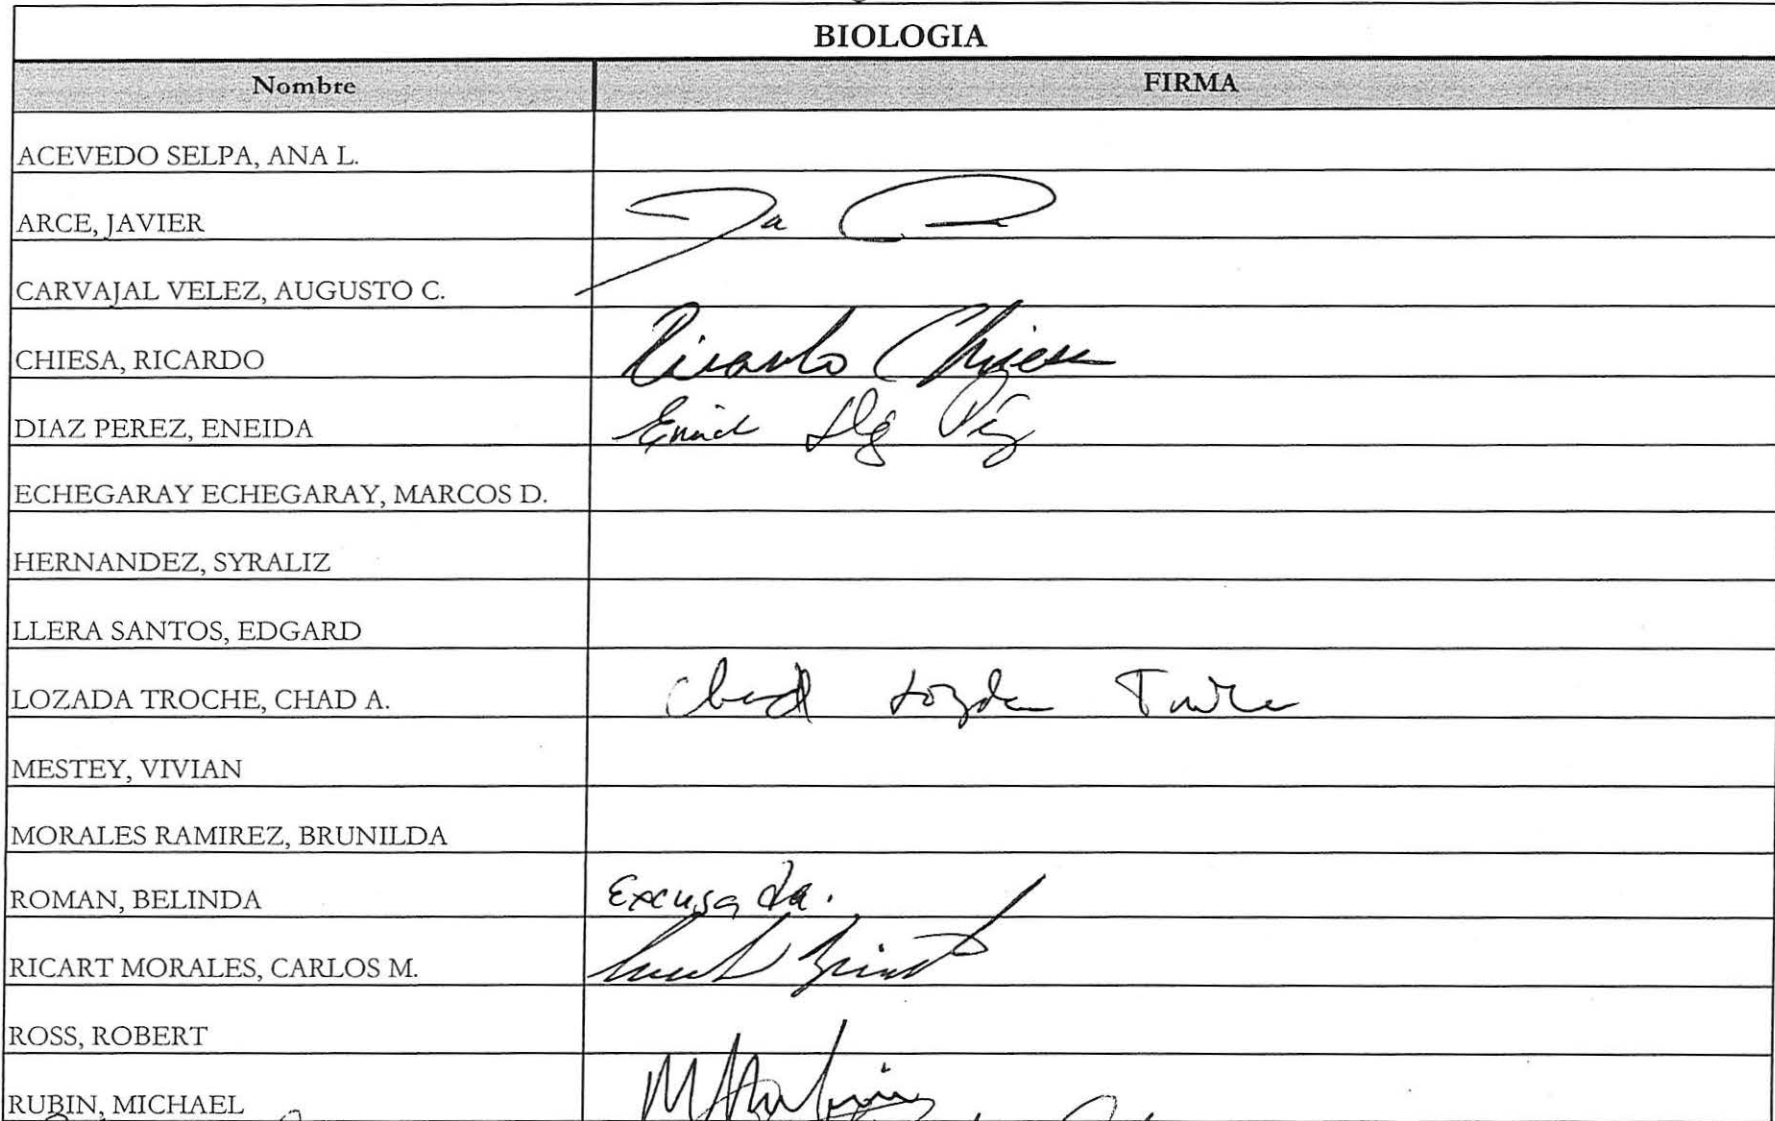 BIOLOGIA
Nombre FIRMA
ACEVEDO SELPA, ANA L.
ARCE, JAVIER
CARVAJAL VELEZ, AUGUSTO C.
CHIESA, RICARDO Ricardo Chiesa
DIAZ PEREZ, ENEIDA
ECHEGARAY ECHEGARAY, MARCOS D.
HERNANDEZ, SYRALIZ
LLERA SANTOS, EDGARD
LOZADA TROCHE, CHAD A. Chad Lozada Troche
MESTEY, VIVIAN
MORALES RAMIREZ, BRUNILDA
ROMAN, BELINDA Excusada.
RICART MORALES, CARLOS M.
ROSS, ROBERT
RUBIN, MICHAEL